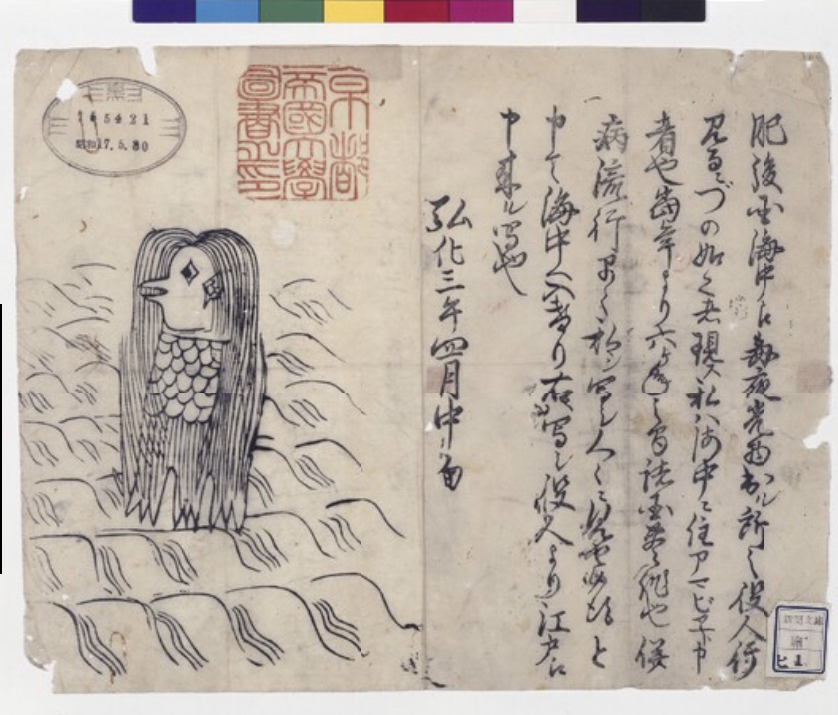 肥後国海中江毎夜光物出ル所之役人行
見るニづの如之者現ス私ハ海中ニ住アマビヱト申
者也当年より六ヶ年之間諸国豊作也併
病流行早々私シ写シ人々ニ見セ候得と
申て海中へ入けり右写シ役人より江戸江
申来ル写也
弘化三年四月中旬
京都
帝國大學
圖書之印
昭和17.5.30
新聞文庫